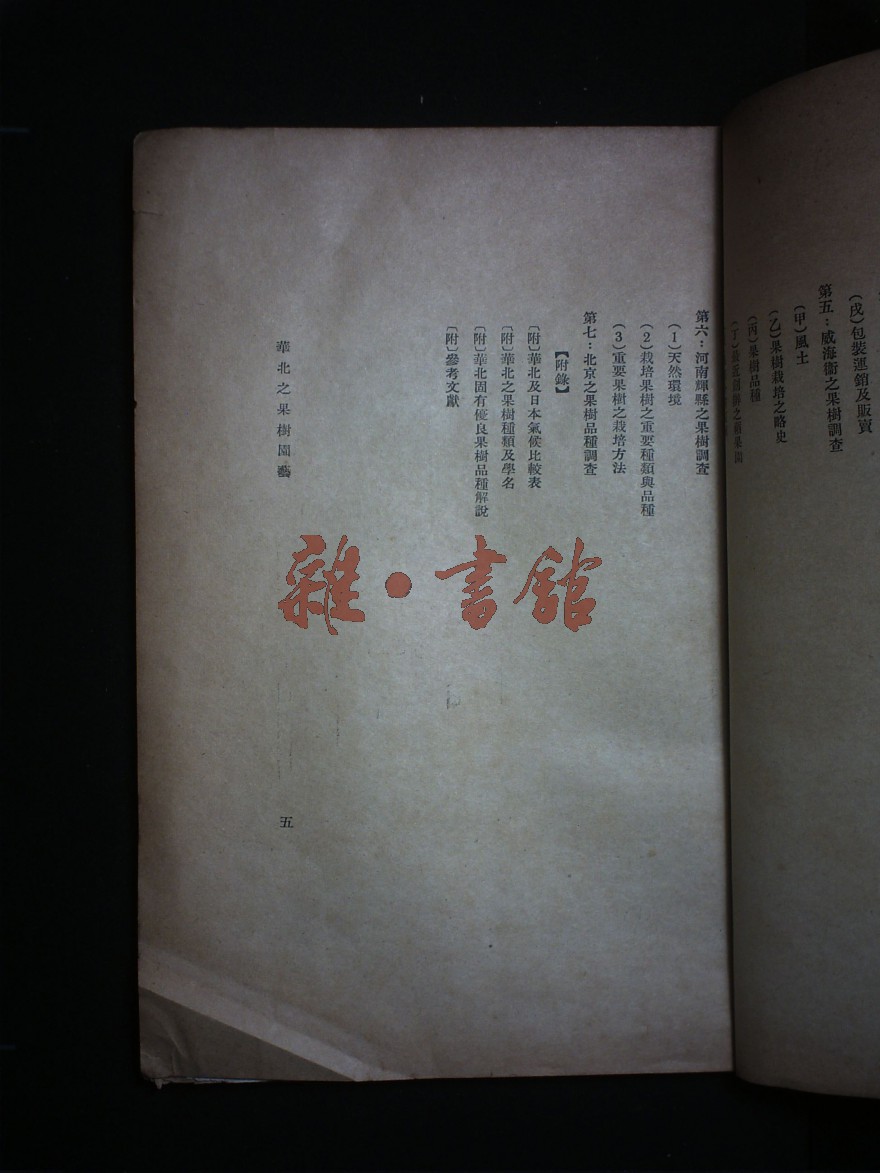 (戌)包裝運銷及販賣
第五：威海衞之果樹調查
(甲)風土
(乙)果樹栽培之略史
(丙)果樹品種
第六：河南輝縣之果樹調查
(1)天然環境
(2)栽培果樹之重要種類與品種
(3)重要果樹之栽培方法
第七：北京之果樹品種調查
【附錄】
〔附〕華北及日本氣候比較表
〔附〕華北之果樹種類及學名
〔附〕華北固有優良果樹品種解說
〔附〕參考文獻
華北之果樹園藝
五
雜·書館